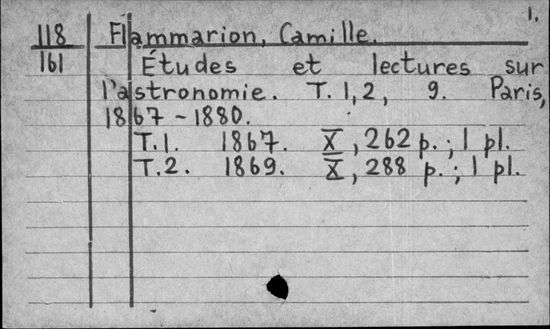 1.
118 Flammarion, Camille.
161 Études et lectures sur
l'astronomie. T. 1, 2, 9. Paris,
1867 - 1880.
T. 1. 1867. X, 262 p.; 1 pl.
T. 2. 1869. X, 288 p.; 1 pl.